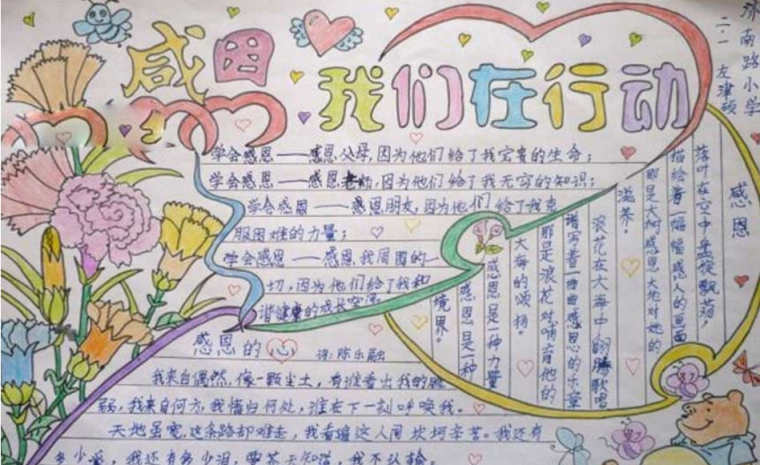 感恩
我们在行动
济南路小学
二·1
学会感恩——感恩父母,因为他们给了我宝贵的生命;
学会感恩——感恩老师,因为他们给了我无穷的知识;
学会感恩——感恩朋友,因为他们给了我克
服困难的力量;
学会感恩——感恩我周围的一
切,因为他们给了我和
谐健康的成长空间
感恩
落叶在空中盘旋飘荡,
描绘着一幅幅感人的画面
那是大树感恩大地对她的
滋养。
浪花在大海中翻腾歌唱
谱写着一曲曲感恩的乐章
那是浪花对哺育他的
大海的颂扬。
感恩是一种力量
感恩是一种
境界。
感恩的心
词:陈乐融
我来自偶然,像一颗尘土,有谁看出我的脆
弱,我来自何方,我情归何处,谁在下一刻呼唤我。
天地虽宽,这条路却难走,我看遍这人间坎坷辛苦。我还有
多少爱,我还有多少泪,要苍天知道,我不认输。